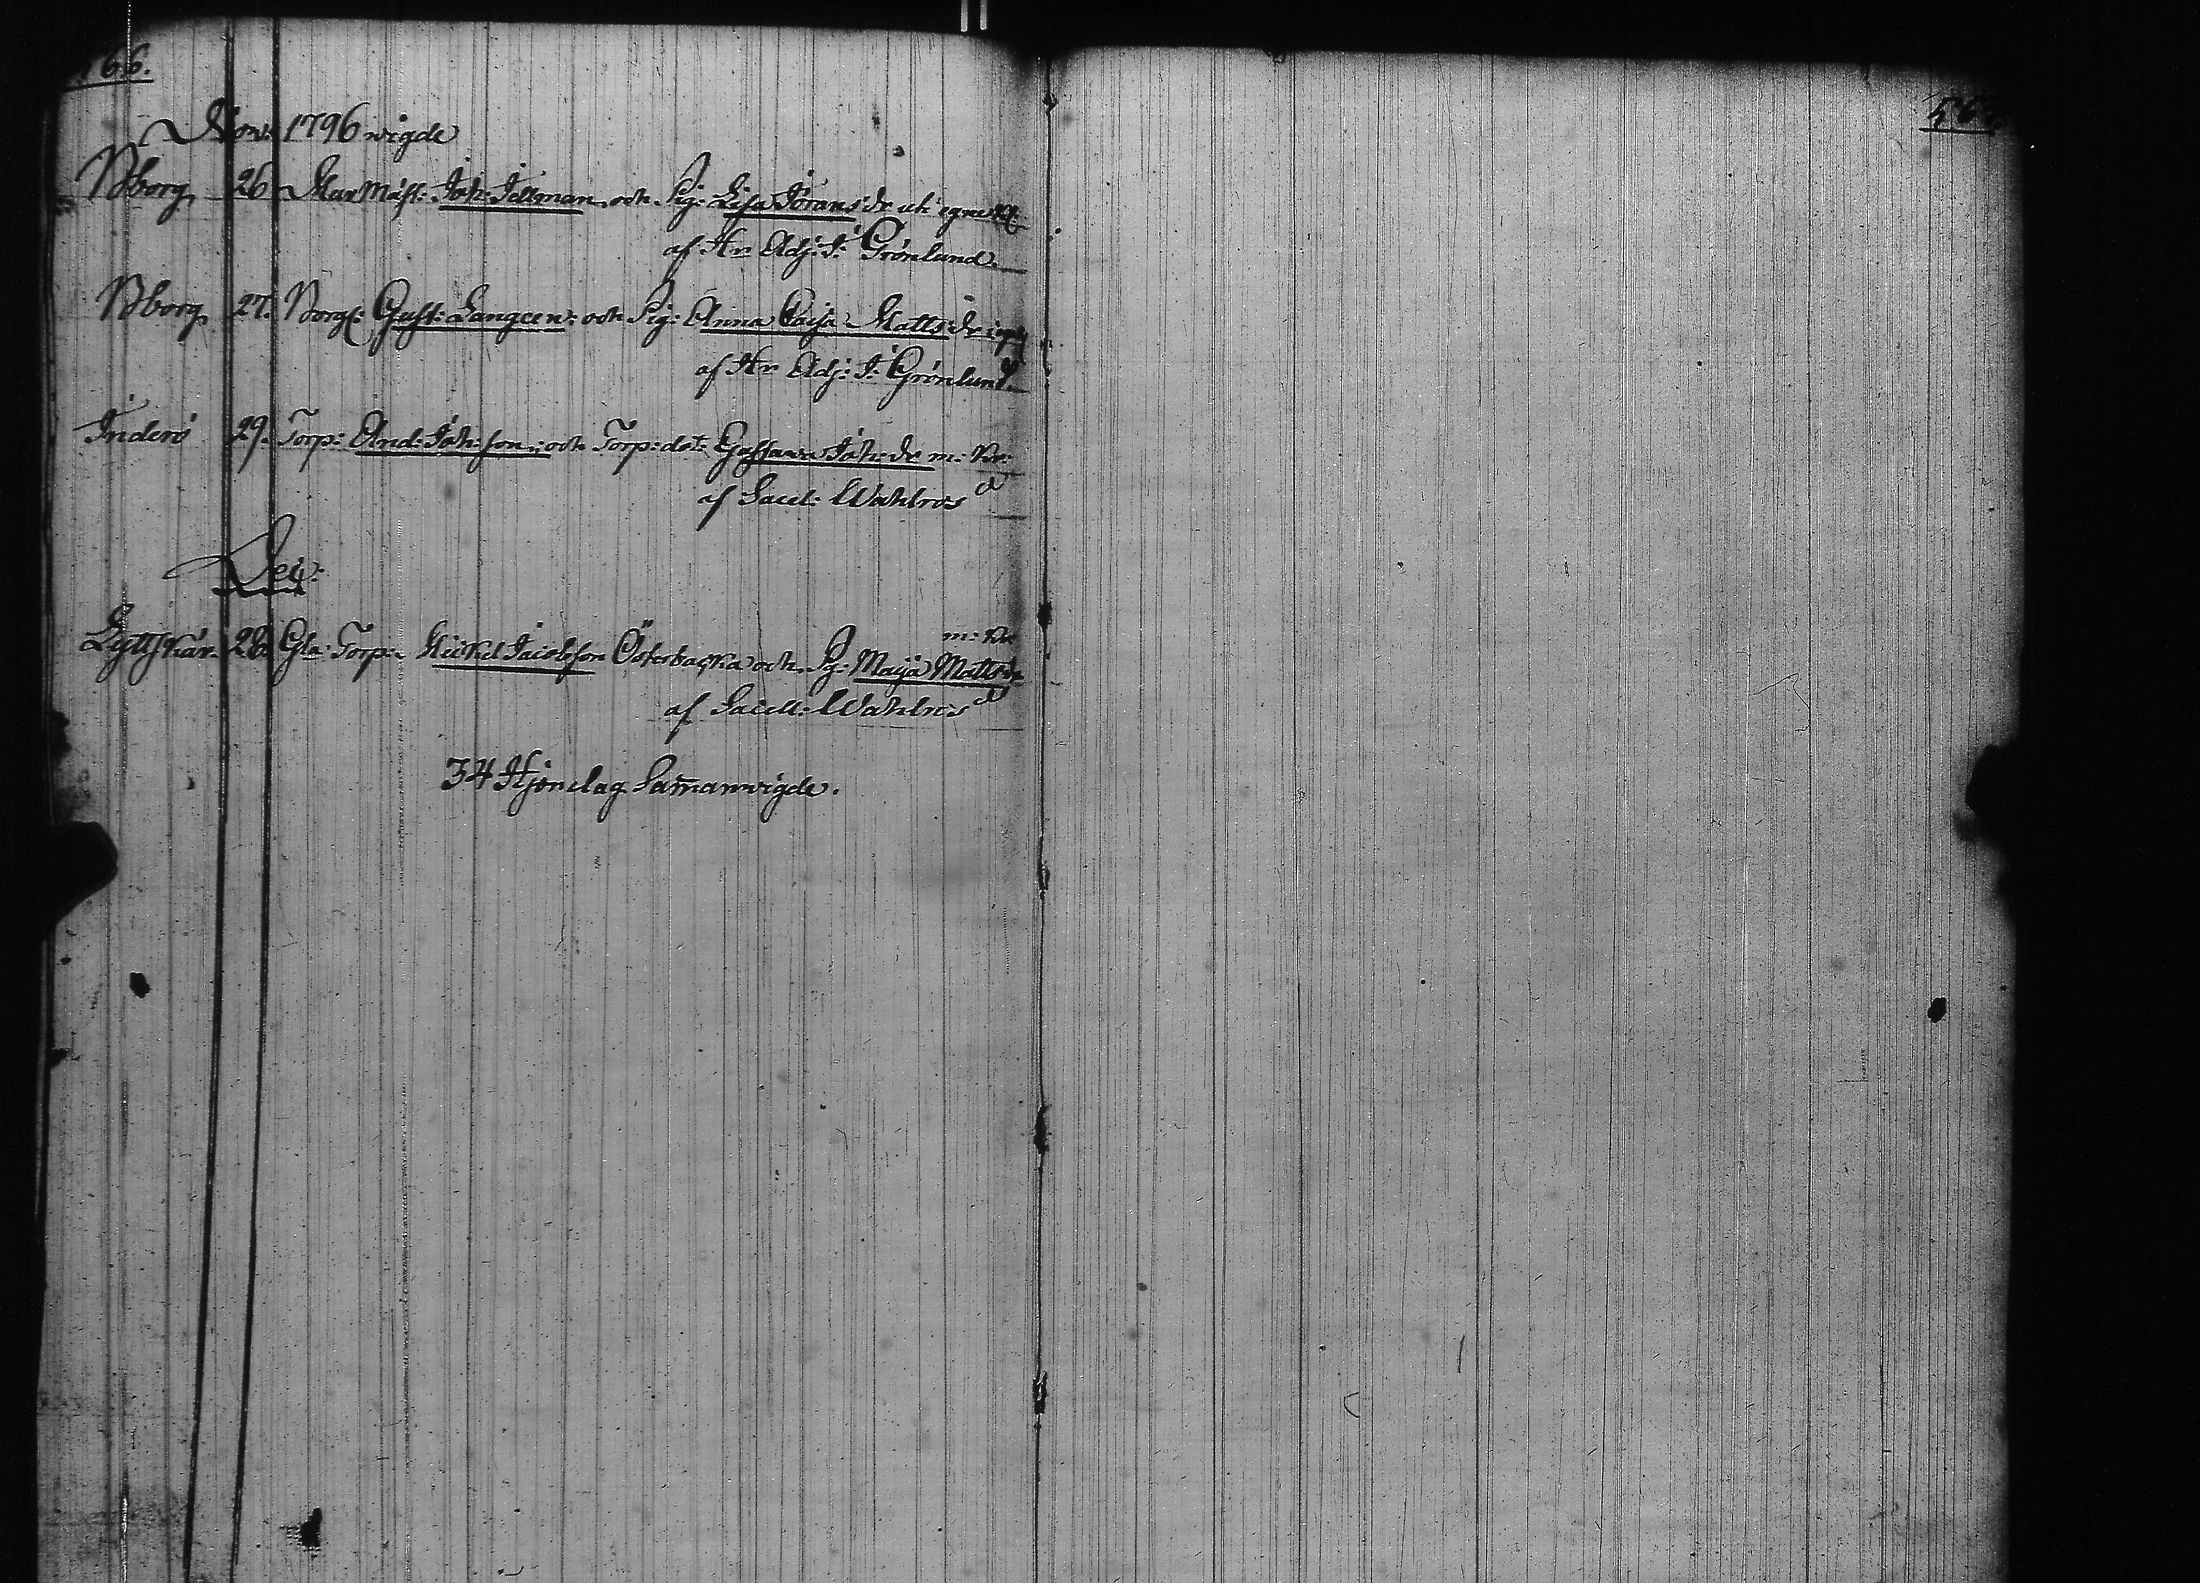 166.
Nov: 1796 wigde
Bborg 26 Mur Mäst: Joh: Tillman och Pig: Lisa Jörans dr uti egne
af Hr Adj: J: Grönlund
Bborg 27. Borg: Gust: Langeen: och Pig: Anna Caisa Matts: dr
af Hr Adj: J: Grönlund
Inderö 29. Torp: And: Joh: son: och Torp: dot: Gustawa Joh: dr m: kr:
af Sacel: Wahlroos
Dec:
Lyttskär 28 Gla: Torp: Mickel Jacobsson Österbacka och Pg: Maija Matts dr m: kr
af Sacell: Wahlroos
34 Hjonelag Samanwigde.